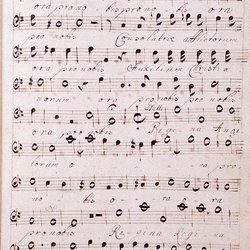 ora pro no bis pro no bis o ra
pro nobis Consolatrix afflictorum
ora pro nobis Auxilium Christia
norum ora pro nobis pro nobis
ora pro nobis Regina Ange
lorum o ra pro
no bis o ra
pro nobis Regina Regina